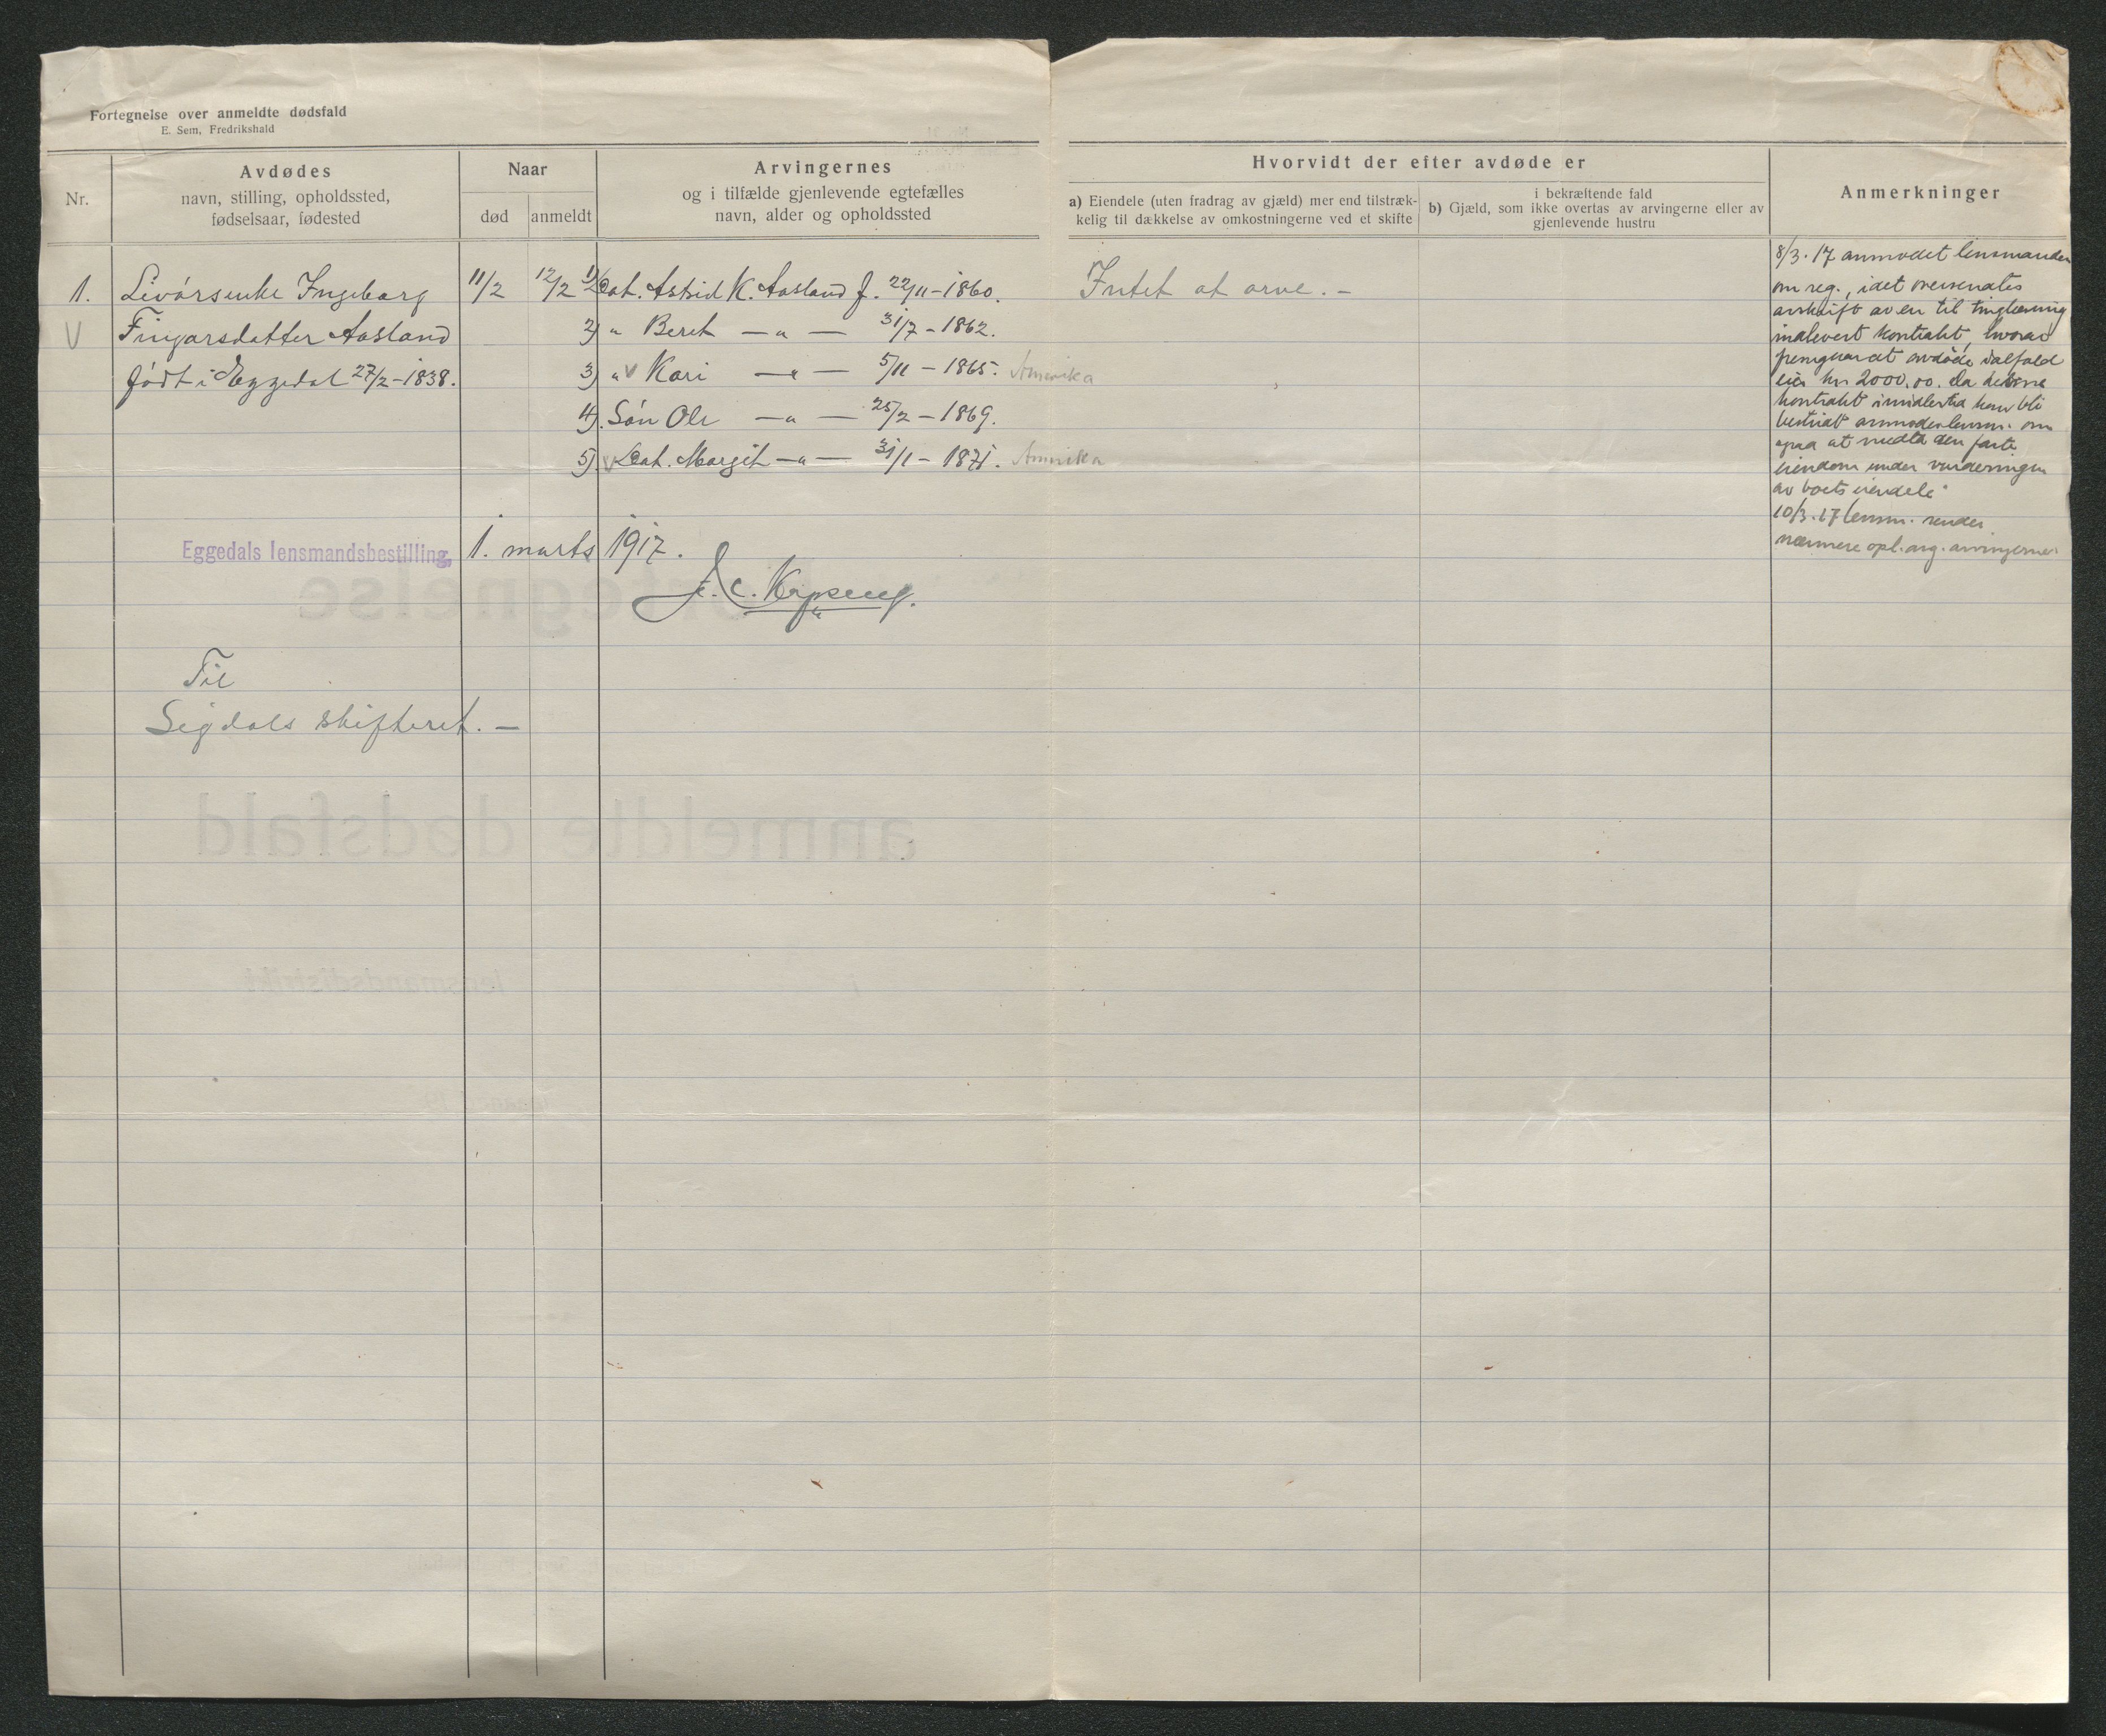 Fortegnelse over anmeldte dødsfald
E. Sem, Fredrikshald
Nr.
Avdødes
navn, stilling, opholdssted,
fødselsaar, fødested
Naar
død
anmeldt
Arvingernes
og i tilfælde gjenlevende egtefælles
navn, alder og opholdssted
Hvorvidt der efter avdøde er
a) Eiendele (uten fradrag av gjæld) mer end tilstræk-
kelig til dækkelse av omkostningerne ved et skifte
i bekræftende fald
b) Gjæld, som ikke overtas av arvingerne eller av
gjenlevende hustru
Anmerkninger
1. Livørsenke Ingeborg 11/2 12/2 1) Dat. Astrid K. Aasland f. 22/11-1860. Intet at arve. –
V Fingarsdatter Aasland 2) " Beret — " — 31/7 - 1862.
født i Eggedal 27/2-1838. 3) " V Kari — " — 5/11 - 1865. Amerika
4). Søn Ole — " — 25/2 - 1869.
5). V Dat. Margit — " — 31/1 - 1871. Amerika
8/3.17 anmodet lensmanden
om reg., idet oversendtes
avskrift av en til tinglæsning
indlevert kontrakt, hvorav
fremgaar at avdøde ialfald
eier kr 2000.00. Da denne
kontrakt imidlertid kan bli
bestridt anmodes lensm. om
ogsaa at medta den faste
eiendom under vurderingen
av boets eiendele
10/3.17 lensm. sender
nærmere opl. ang. arvingerne
Eggedals lensmandsbestilling, 1. marts 1917.
Til
Sigdals skifteret. –